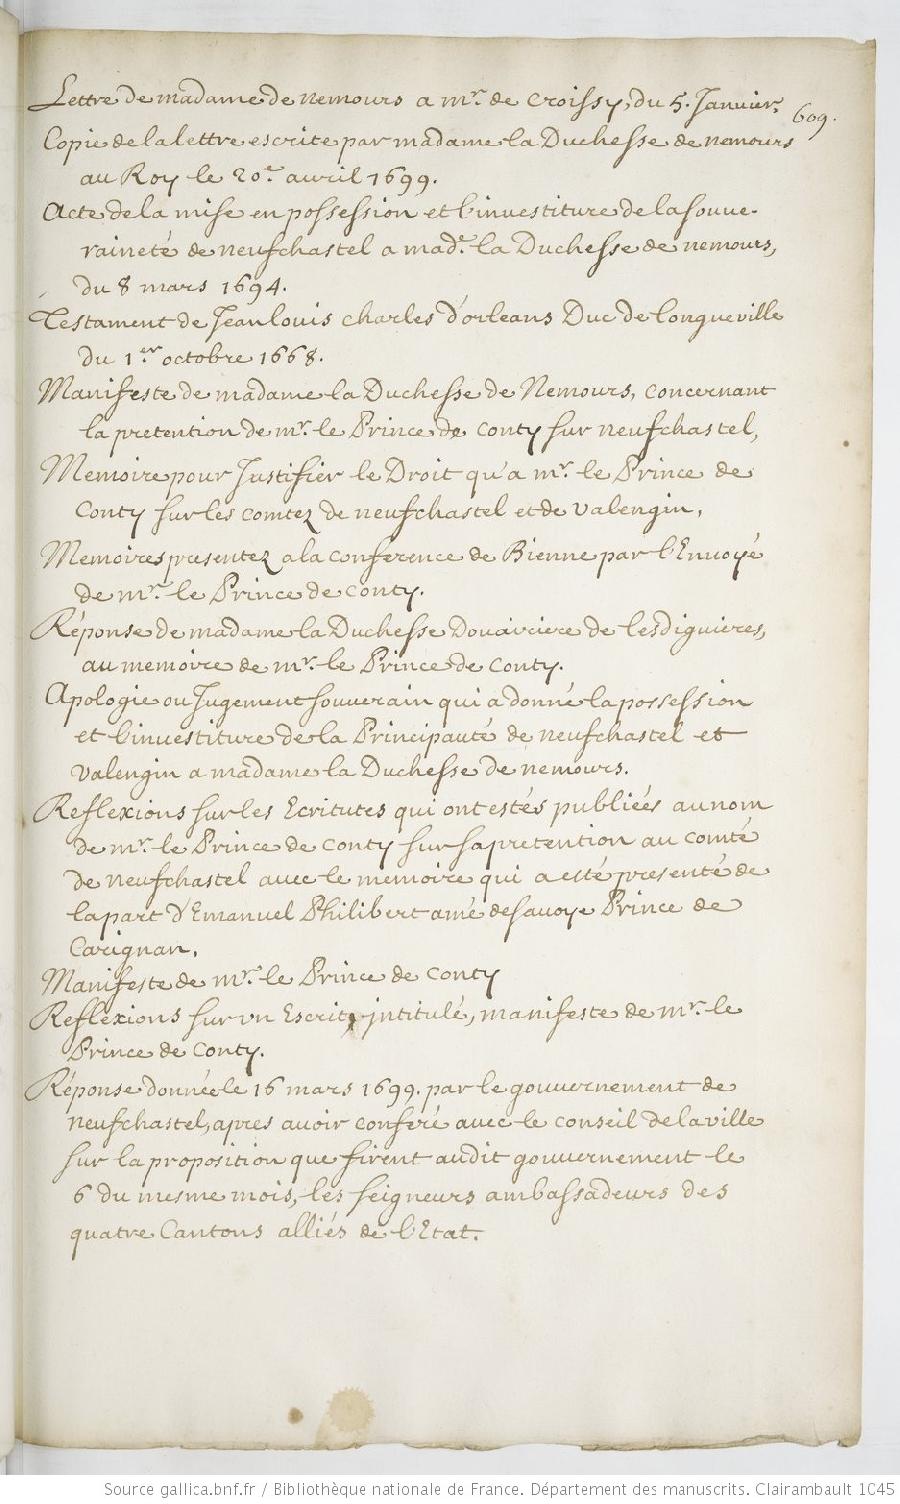 Lettre de madame de nemours a mr. de Croissy, du 5. Janvier.
609.
Copie de la lettre escrite par madame la Duchesse de nemours
au Roy le 20e. avril 1699.
Acte de la mise en possession et l'investiture de la souve-
raineté de neufchastel a made. la Duchesse de nemours,
du 8 mars 1694.
Testament de Jean louis charles d'orleans Duc de longueville
du 1er octobre 1668.
Manifeste de madame la Duchesse de Nemours, concernant
la pretention de mr. le Prince de Conty sur neufchastel,
Memoire pour Justifier le Droit qu'a mr. le Prince de
Conty sur les comtez de neufchastel et de valengin,
Memoires presentez a la conference de Bienne par l'Envoyé
de mr. le Prince de Conty.
Réponse de madame la Duchesse Douairiere de lesdiguieres,
au memoire de mr. le Prince de Conty.
Apologie ou Jugement souverain qui a donné la possession
et l'investiture de la Principauté de neufchastel et
valengin a madame la Duchesse de nemours.
Reflexions sur les Ecritutes qui ont estés publiées au nom
de mr. le Prince de Conty sur sa pretention au comté
de neufchastel avec le memoire qui a esté presenté de
la part d'Emanuel Philibert amé de savoye Prince de
Carignan.
Manifeste de mr. le Prince de Conty
Reflexions sur un Escrit, jntitulé, manifeste de mr. le
Prince de Conty.
Réponse donnée le 16 mars 1699. par le gouvernement de
neufchastel, apres avoir conferé avec le conseil de la ville
sur la proposition que firent audit gouvernement le
6 du mesme mois, les seigneurs ambassadeurs des
quatre Cantons alliés de l'Etat.
Source gallica.bnf.fr / Bibliothèque nationale de France. Département des manuscrits. Clairambault 1045